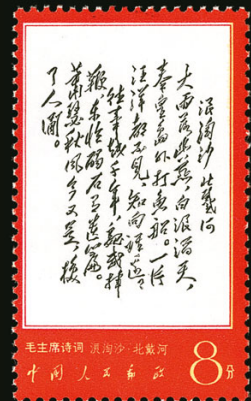 浪淘沙 北戴河
大雨落幽燕,白浪滔天,
秦皇島外打魚船。一片
汪洋都不見,知向誰邊?
往事越千年,魏武揮
鞭,東臨碣石有遺篇。
蕭瑟秋風今又是,換
了人間。
毛主席诗词 浪淘沙·北戴河
中国人民邮政
8分